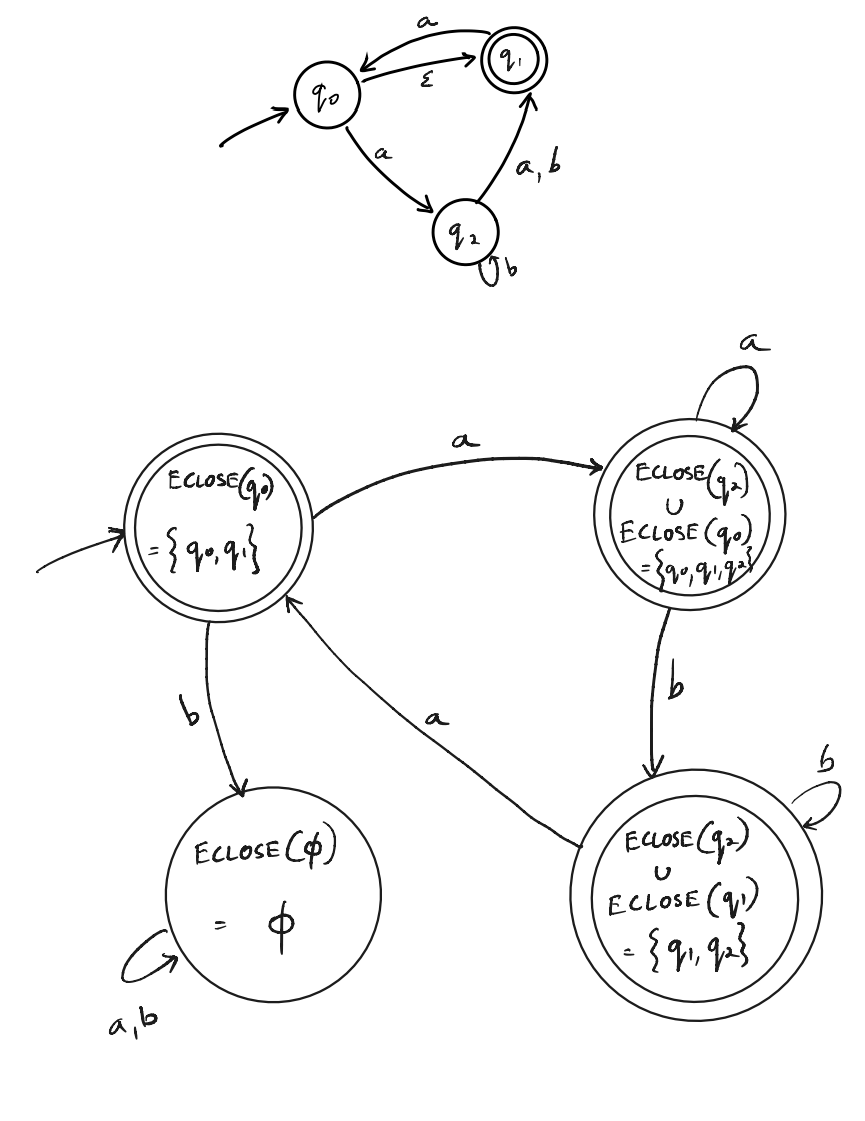 a
q₁
q₀
ε
a
a, b
q₂
b
a
a
ECLOSE(q₀)
= {q₀, q₁}
ECLOSE(q₂)
∪
ECLOSE(q₀)
= {q₀, q₁, q₂}
b
b
a
b
ECLOSE(ϕ)
= ϕ
ECLOSE(q₂)
∪
ECLOSE(q₁)
= {q₁, q₂}
a, b